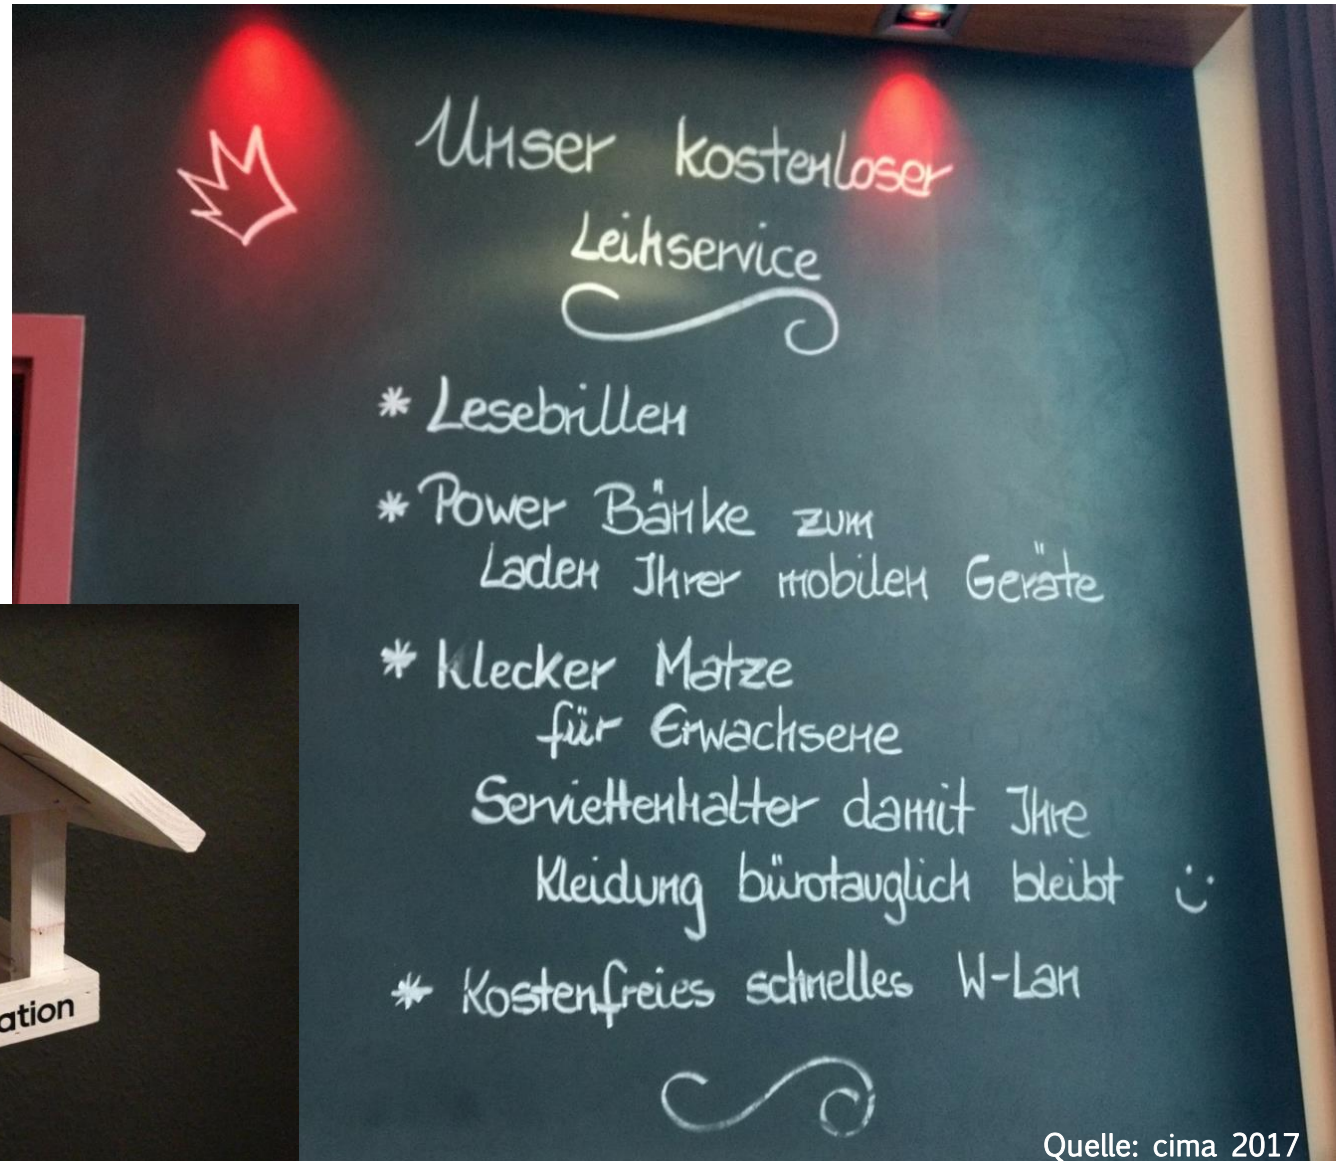 Unser kostenloser
Leihservice
* Lesebrillen
* Power Bänke zum
Laden Ihrer mobilen Geräte
* Klecker Matze
für Erwachsene
Serviettenhalter damit Ihre
Kleidung bürotauglich bleibt :)
* Kostenfreies schnelles W-Lan
ation
Quelle: cima 2017